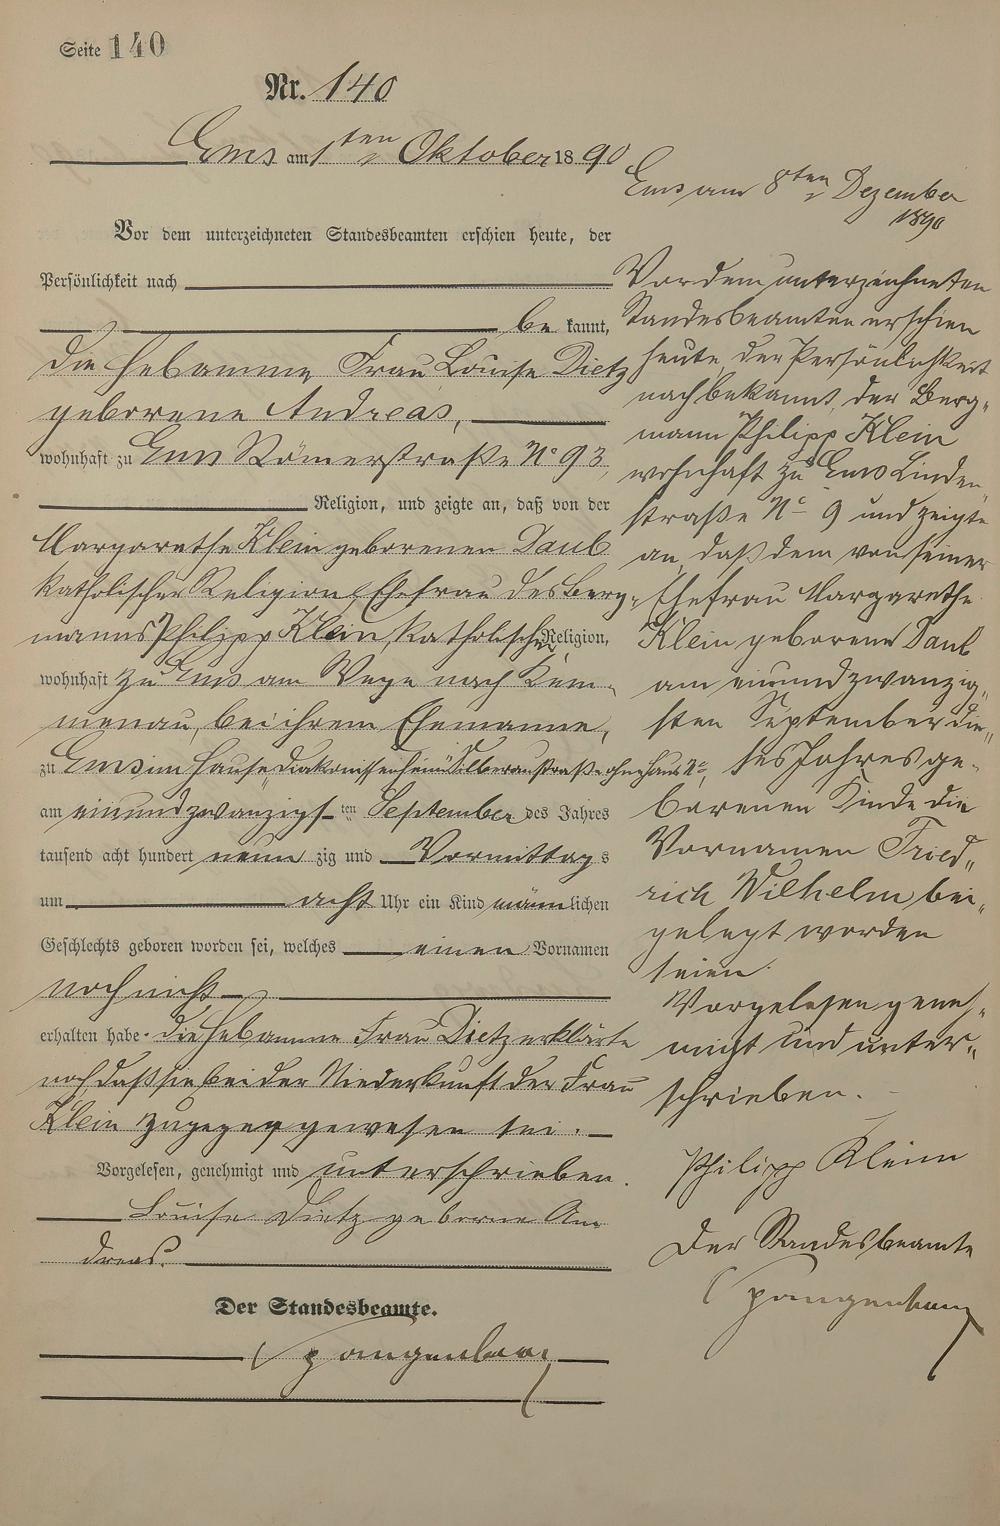 Seite 140
Nr. 140
Ems am 1ten Oktober 1890
Vor dem unterzeichneten Standesbeamten erschien heute, der
Persönlichkeit nach
be kannt,
die Hebamme Frau Louise Dietz
geborene Andreas,
wohnhaft zu Ems Römerstraße No 93,
Religion, und zeigte an, daß von der
Margarethe Klein geborenen Daub
katholischer Religion, Ehefrau des Berg-
manns Philipp Klein, katholischer Religion,
wohnhaft zu Ems am Wege nach Kem-
menau, bei ihrem Ehemanne,
zu Ems im Hause "Diakonissenheim" Silberaustraße ohne Haus No,
am einundzwanzigs ten September des Jahres
tausend acht hundert neun zig und Vormittag s
um acht Uhr ein Kind männlichen
Geschlechts geboren worden sei, welches einen Vornamen
noch nicht
erhalten habe. die Hebamme Frau Dietz erklärte
noch daß sie bei der Niederkunft der Frau
Klein zugegen gewesen sei.
Vorgelesen, genehmigt und unterschrieben.
Louise Dietz geborne An
dreas.
Der Standesbeamte.
Spangenberg
Ems am 8ten Dezember
1890
Vor dem unterzeichneten
Standesbeamten erschien
heute, der Persönlichkeit
nach bekannt, der Berg-
mann Philipp Klein
wohnhaft zu Ems Linden-
straße No 9 und zeigte
an, daß dem von seiner
Ehefrau Margarethe
Klein geborene Daub
am einundzwanzig-
sten September die-
ses Jahres ge-
borenen Kinde die
Vornamen Fried-
rich Wilhelm bei-
gelegt worden
seien.
Vorgelesen geneh-
migt und unter-
schrieben.
Philipp Klein
Der Standesbeamte
Spangenberg